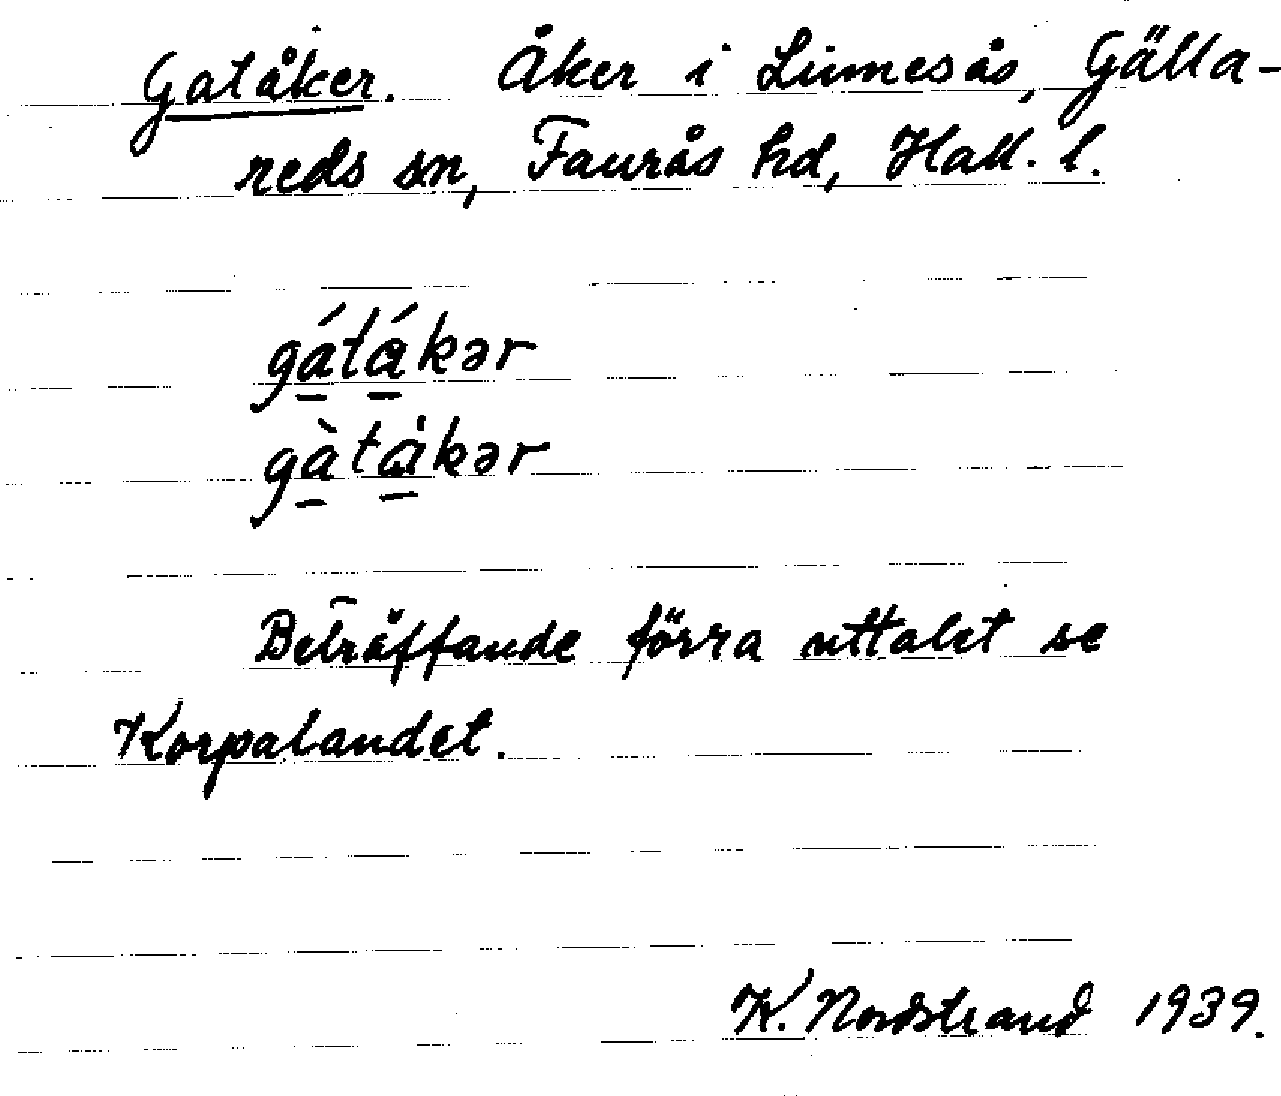 Gatåker. Åker i Limesås, Gälla-
reds sn, Faurås hd, Hall. l.
gátákər
gàtåkər
Beträffande förra uttalet se
Korpalandet.
K. Nordstrand 1939.